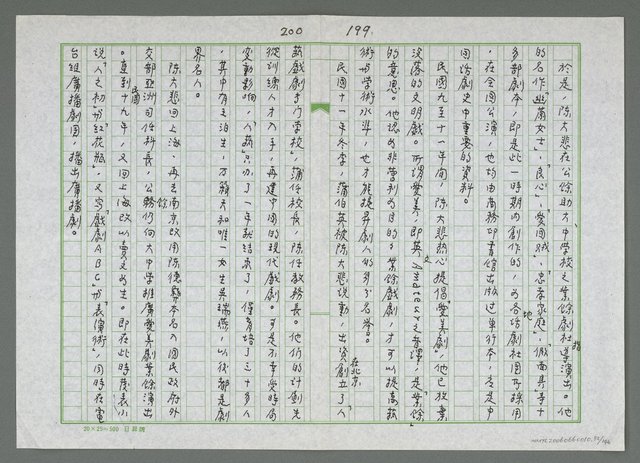 200
199
於是，陳大悲在公餘助大、中學校之業餘劇社指導演出。他
的名作「幽蘭女士」、「良心」、「愛國賊」、「忠孝家庭」、「假面具」等十
多部劇本，即是此一時期內創作的，為各話劇社團所採用
，在全國各地公演，也均由商務印書館出版過單行本，若是中
國話劇史中重要的資料。
民國九至十一年間，陳大悲熱心提倡「愛美劇」，他已放棄
沒落的文明戲。所謂愛美，即英文Amateur之音譯，是「業餘」
的意思。他認為非營利為目的的業餘戲劇，才可以提高藝
術與學術水準，也才能提昇劇人的身分名譽。
民國十一年冬季，蒲伯英被陳大悲說動，出資在北京創立了「人
藝戲劇專門學校」，蒲任校長，陳任教務長。他們的計劃先
從訓練人才入手，再建中國的現代戲劇。可是不幸受時局
變動影響，「人藝」只辦了一年就結束了，僅育培了三十多人
，其中有王泊生，萬籟天和唯一女生吳瑞燕，以後都是劇
界名人。
陳大悲回上海，再去南京改用陳德鄰本名入國民政府外
交部亞洲司任科長，公餘仍向大中學推廣愛美劇業餘演出
。直到民國十九年，又回上海改以賣文為生。即在此時發表小
說「人之初」與「紅花瓶」，又寫「戲劇ABC」與「表演術」，同時在電
台組廣播劇團，播出廣播劇。
20×25=500